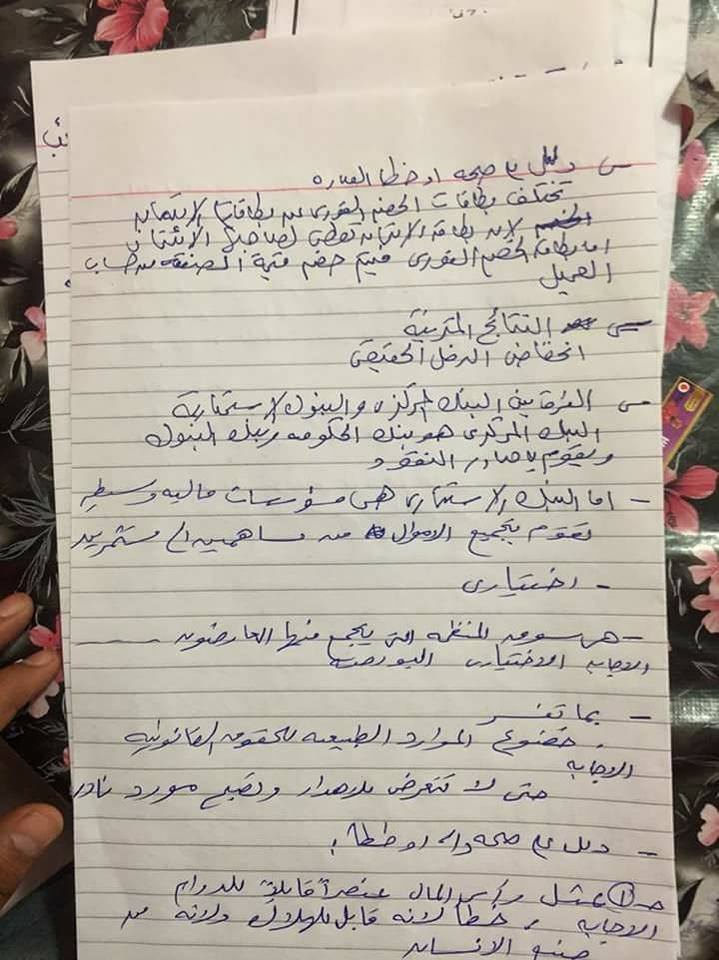 س دلل على صحه او خطا العباره
تختلف بطاقات الخصم الفورى عن بطاقات الإئتمان
لان بطاقة الإئتمان تعطى لصاحبها الائتمان
اما بطاقة الخصم الفورى فيتم خصم قيمة الصفقه من حساب
العميل
س النتائج المترتبة
انخفاض الدخل الحقيقى
س الفرق بين البنك المركزى والبنوك الإستثمارية
البنك المركزى هو بنك الحكومه وبنك البنوك
ويقوم باصدار النقود
- اما البنك الإستثمارى هى مؤسسات ماليه وسيطه
تقوم بتجميع الاموال من مساهمين الى مستثمرين
- اختيارى
- هى سوق المنظمه التى يجمع فيها العارضون
الاجابه الاختيارى البورصه
- بما تفسر
. خضوع الموارد الطبيعه للحقوق القانونيه
الاجابه
حتى لا تتعرض للاهدار وتصبح مورد نادر
- دلل على صحه او خطا:
حـ ① يمثل رأس المال عنصراً قابلاً للدوام
الاجابه خطا لانه قابل للهلاك ولانه من
صنع الانسان